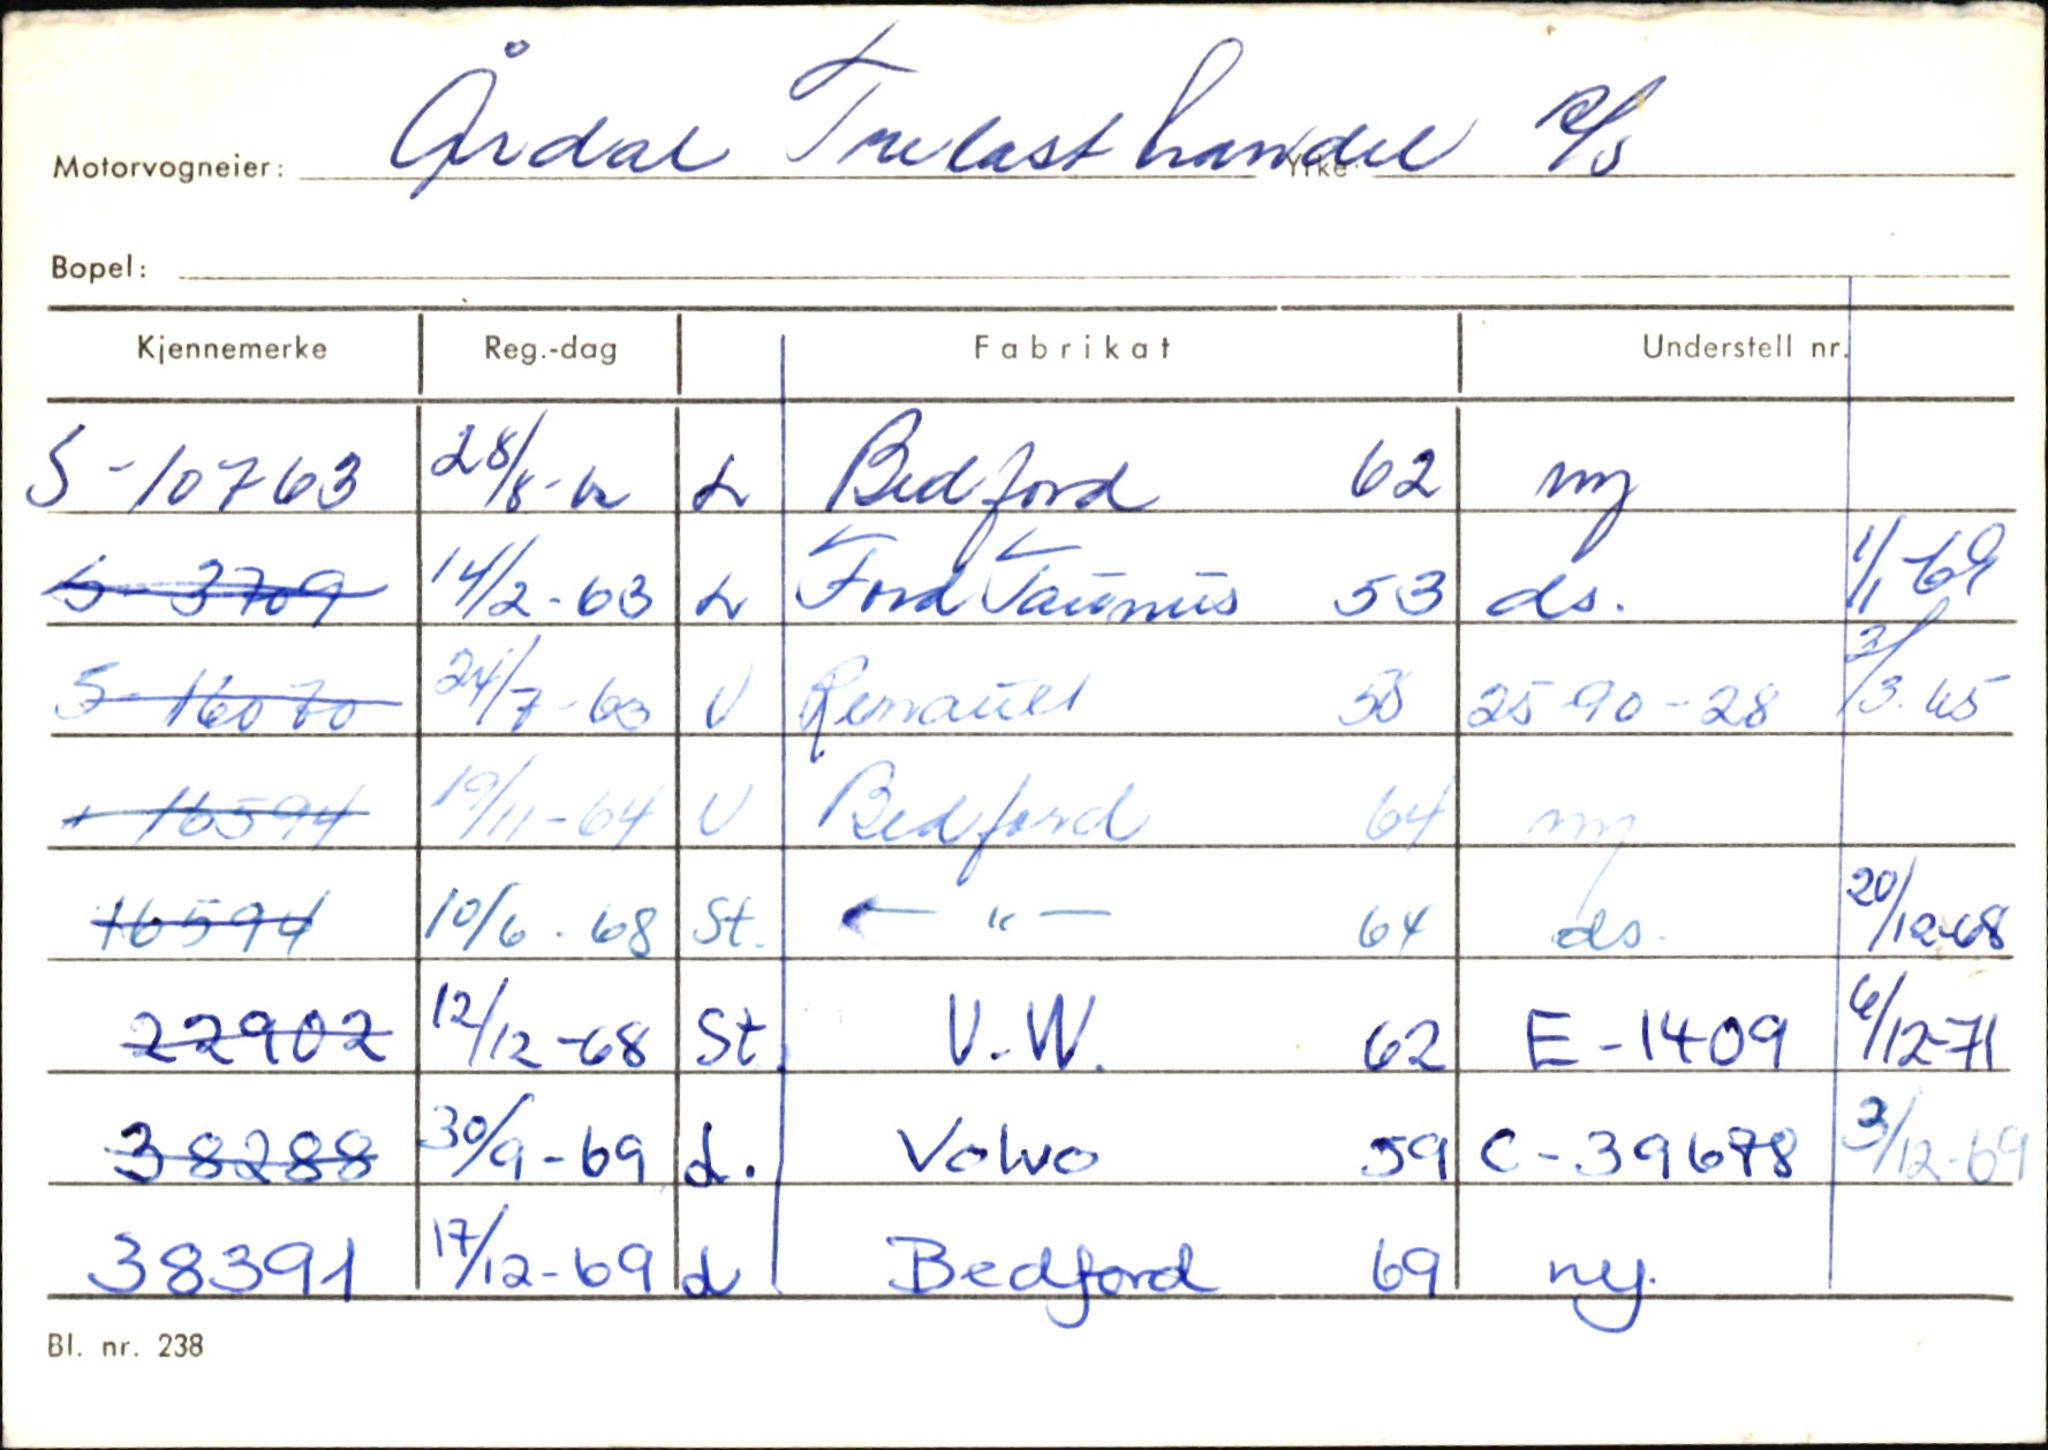 Motorvogneier: Årdal Trelasthandel a/s Yrke
Bopel:
Kjennemerke Reg.-dag Fabrikat Understell nr.
S-10763 28/8-62 L Bedford 62 ny
S-3709 14/2-63 L Ford Taunus 53 ds. 1/1-69
S-16070 24/7-63 V Renault 58 25-90-28 2/3.65
" 16594 19/11-64 V Bedford 64 ny
16594 10/6-68 St. — " — 64 ds. 20/12-68
22902 12/12-68 St. V.W. 62 E-1409 6/12-71
38288 30/9-69 L. Volvo 59 C-39678 3/12-69
38391 17/12-69 L Bedford 69 ny.
Bl. nr. 238